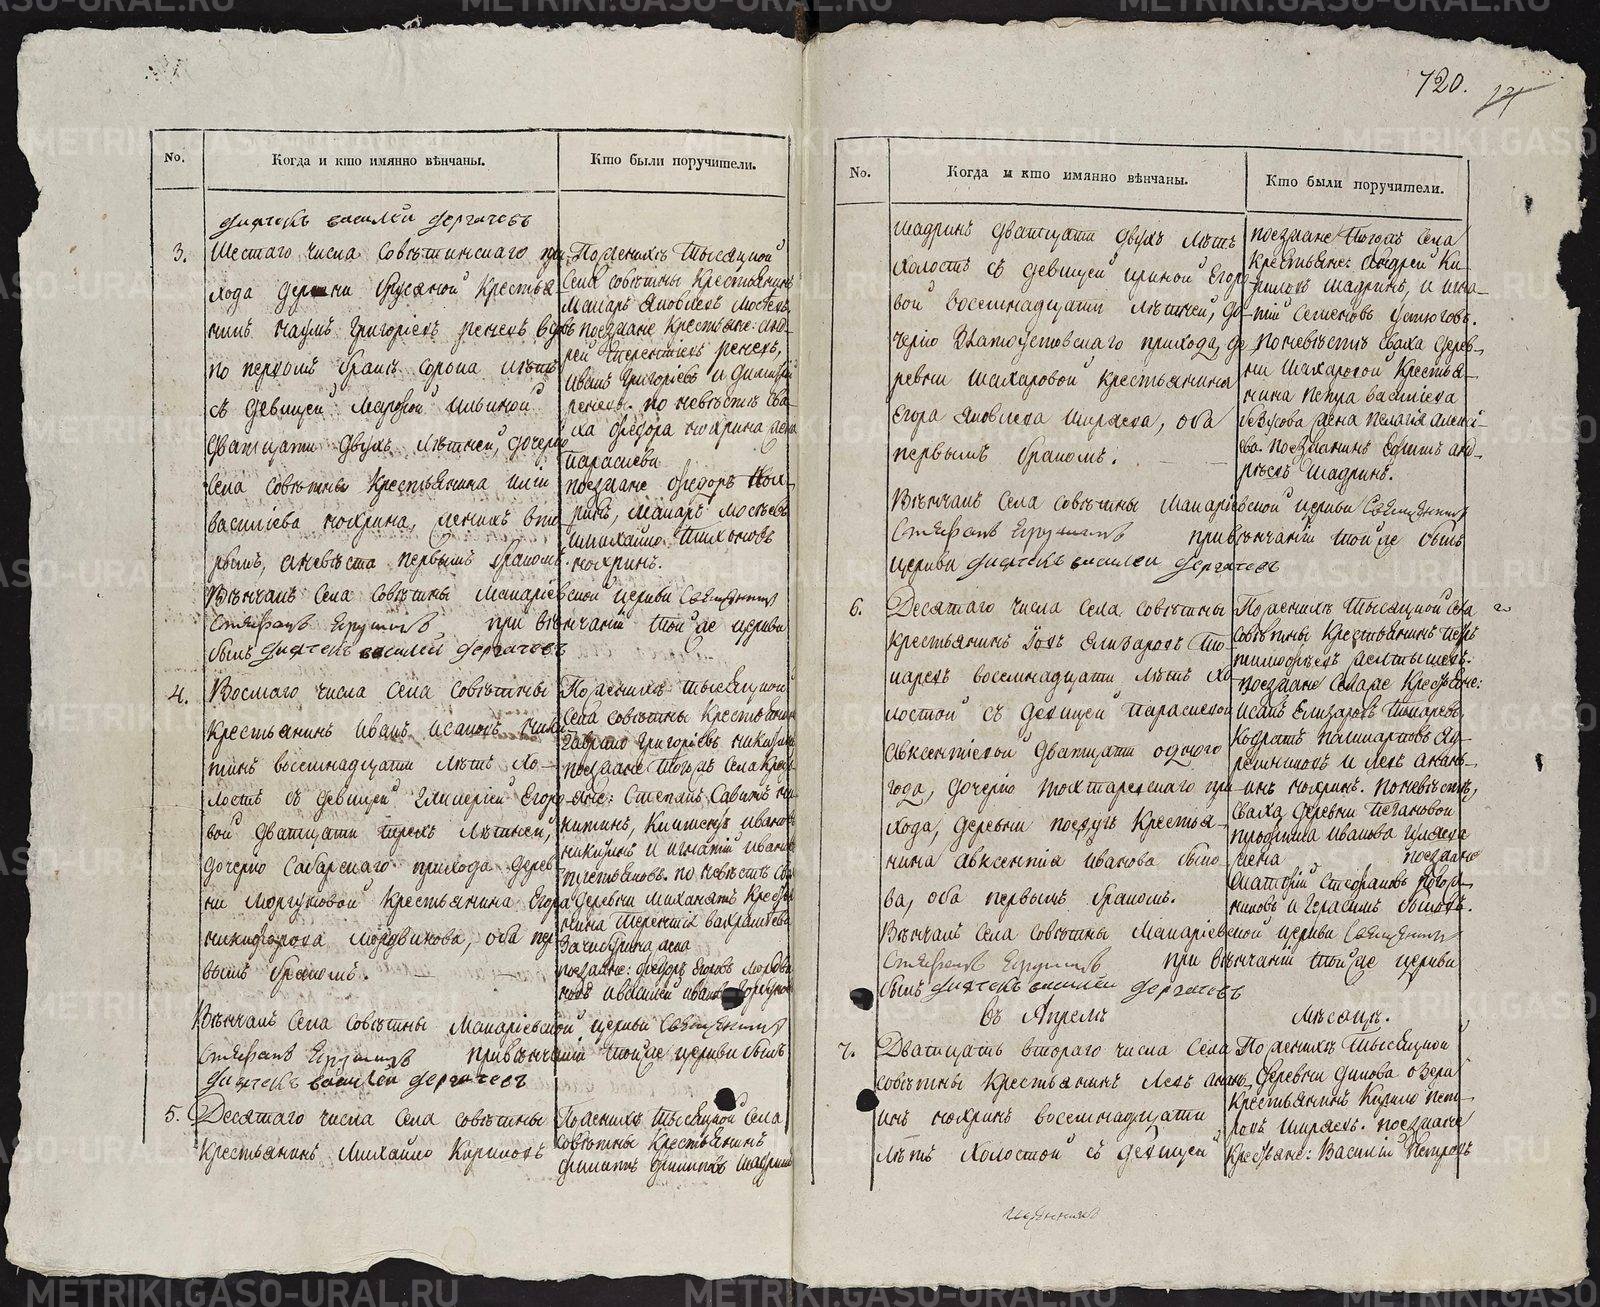 No.
Когда и кто имянно вѣнчаны.
Кто были поручители.
дьячекъ василей дергачевъ
3.
Шестаго числа Совѣтинскаго при-
хода деревни Крестья
нинъ наумъ Григорьевъ реневъ вдов
по первомъ бракѣ сорока лѣтъ
съ девицей Марфой Ильиной
дватцати двухъ лѣтней, дочерью
Села совѣтны крестьянина Ильи
василиева нохрина, женихъ вто
рымъ, а невѣста первымъ бракомъ.
Вѣнчалъ Села Совѣтны Макарiевской церкви Священникъ
Стефанъ при вѣнчанiи той же церкви
былъ дьячекъ василей дергачевъ
По женихѣ Тысяцкой
Села совѣтны Крестьянинъ
Макаръ Яковлевъ
поезжане Крестьяне: анд-
рей Терентьевъ реневъ,
Иванъ Григорьевъ и
реневы. по невѣстѣ сва-
ха федора нохрина жена
параскева
поезжане федоръ нох-
ринъ, Макаръ
и михайло Тихоновъ
нохринъ.
4.
Восмаго числа Села Совѣтны
Крестьянинъ Иванъ Исаковъ ники-
тинъ восемнадцати лѣтъ хо-
лостъ съ девицей Гликерiей Егоро
вой дватцати трехъ лѣтней,
дочерью Сабарскаго прихода дерев-
ни Моргуновой Крестьянина Егора
никифорова мордвинова, оба пер
вымъ бракомъ.
Вѣнчалъ Села Совѣтны Макарiевской церкви Священникъ
Стефанъ при вѣнчанiи той же церкви былъ
дьячекъ василей дергачевъ
По женихѣ тысяцкой
Села совѣтны Крестьянин
Гаврило Григорьевъ никитин
поезжане Тогожъ Села Кресть
яне: Степанъ Савинъ ни-
китинъ, Иванов
никитинъ и игнатiй Иванов
по невѣстѣ сва
ха деревни Крестья
нина Терентiя вахрамѣева
жена
поезжане: федоръ Егоровъ мордви
новъ и василей иванов моргунов
5.
Десятаго числа Села совѣтны
Крестьянинъ Михайло Кириловъ
По женихѣ Тысяцкой Села
Совѣтны Крестьянинъ
филипъ филиповъ шадринъ
720.
No.
Когда и кто имянно вѣнчаны.
Кто были поручители.
шадринъ дватцати двухъ лѣтъ
холостъ съ девицей ириной Егоро
вой восемнадцати лѣтней, до-
черью Златоустовскаго прихода, де
ревни Шахаровой крестьянина
Егора Яковлева ширяева, оба
первымъ бракомъ.
Вѣнчалъ Села Совѣтны Макарiевской церкви Священникъ
Стефанъ при вѣнчанiи той же былъ
церкви дьячекъ василей дергачевъ
поезжане Тогожъ Села
Крестьяне: Андрей Ки-
риловъ шадринъ, и игна-
тiй Семеновъ устюговъ.
по невѣстѣ сваха дерев-
ни Шахаровой Крестья-
нина петра василiева
жена пелагiя алексѣ-
ева. поезжанинъ Ефимъ анд-
рѣевъ шадринъ.
6.
Десятаго числа Села Совѣтны
Крестьянинъ Iовъ Елизаровъ То-
каревъ восемнадцати лѣтъ хо-
лостой съ девицей параскевой
Авксентiевой дватцати одного
года, дочерью Тохтаревскаго при-
хода, деревни поедугъ Крестья-
нина Авксентiя Иванова быко-
ва, оба первымъ бракомъ.
Вѣнчалъ Села Совѣтны Макарiевской церкви Священникъ
Стефанъ при вѣнчанiи той же церкви
былъ дьячекъ василей дергачевъ
По женихѣ Тысяцкой Села
Совѣтны Крестьянинъ петръ
тимофеевъ желтышевъ.
поезжане Села же Крестьяне:
Исакъ Елизаровъ Токаревъ,
и левъ анань-
инъ нохринъ. по невѣстѣ,
Сваха деревни пегановой
Иванова
жена поезжане
Стефановъ
и Герасимъ быковъ.
въ Апрелѣ
мѣсяцѣ.
7.
Дватцать втораго числа Села
Совѣтны Крестьянинъ левъ анань-
инъ нохринъ восемнадцати
лѣтъ холостой съ девицей
По женихѣ Тысяцкой
деревни дикова озера
Крестьянинъ Кирило пет-
ровъ ширяевъ. поезжане
Крестьяне: Василiй Петровъ